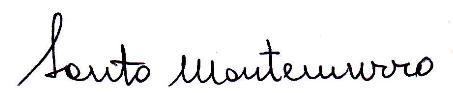 Santo Montemurro